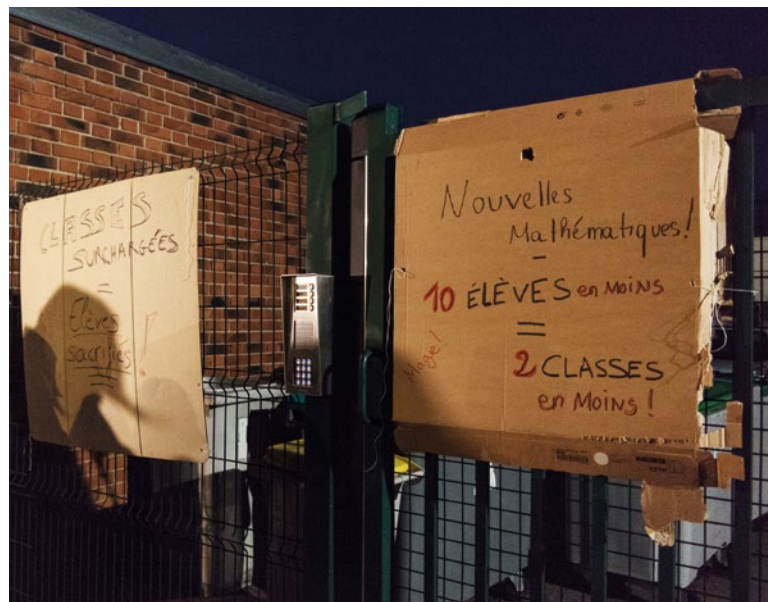 CLASSES
SURCHARGÉES
=
Élèves
sacrifiés !
Nouvelles
Mathématiques!
10 ÉLÈVES en MOINS
=
Magie!
2 CLASSES
en MOINS !